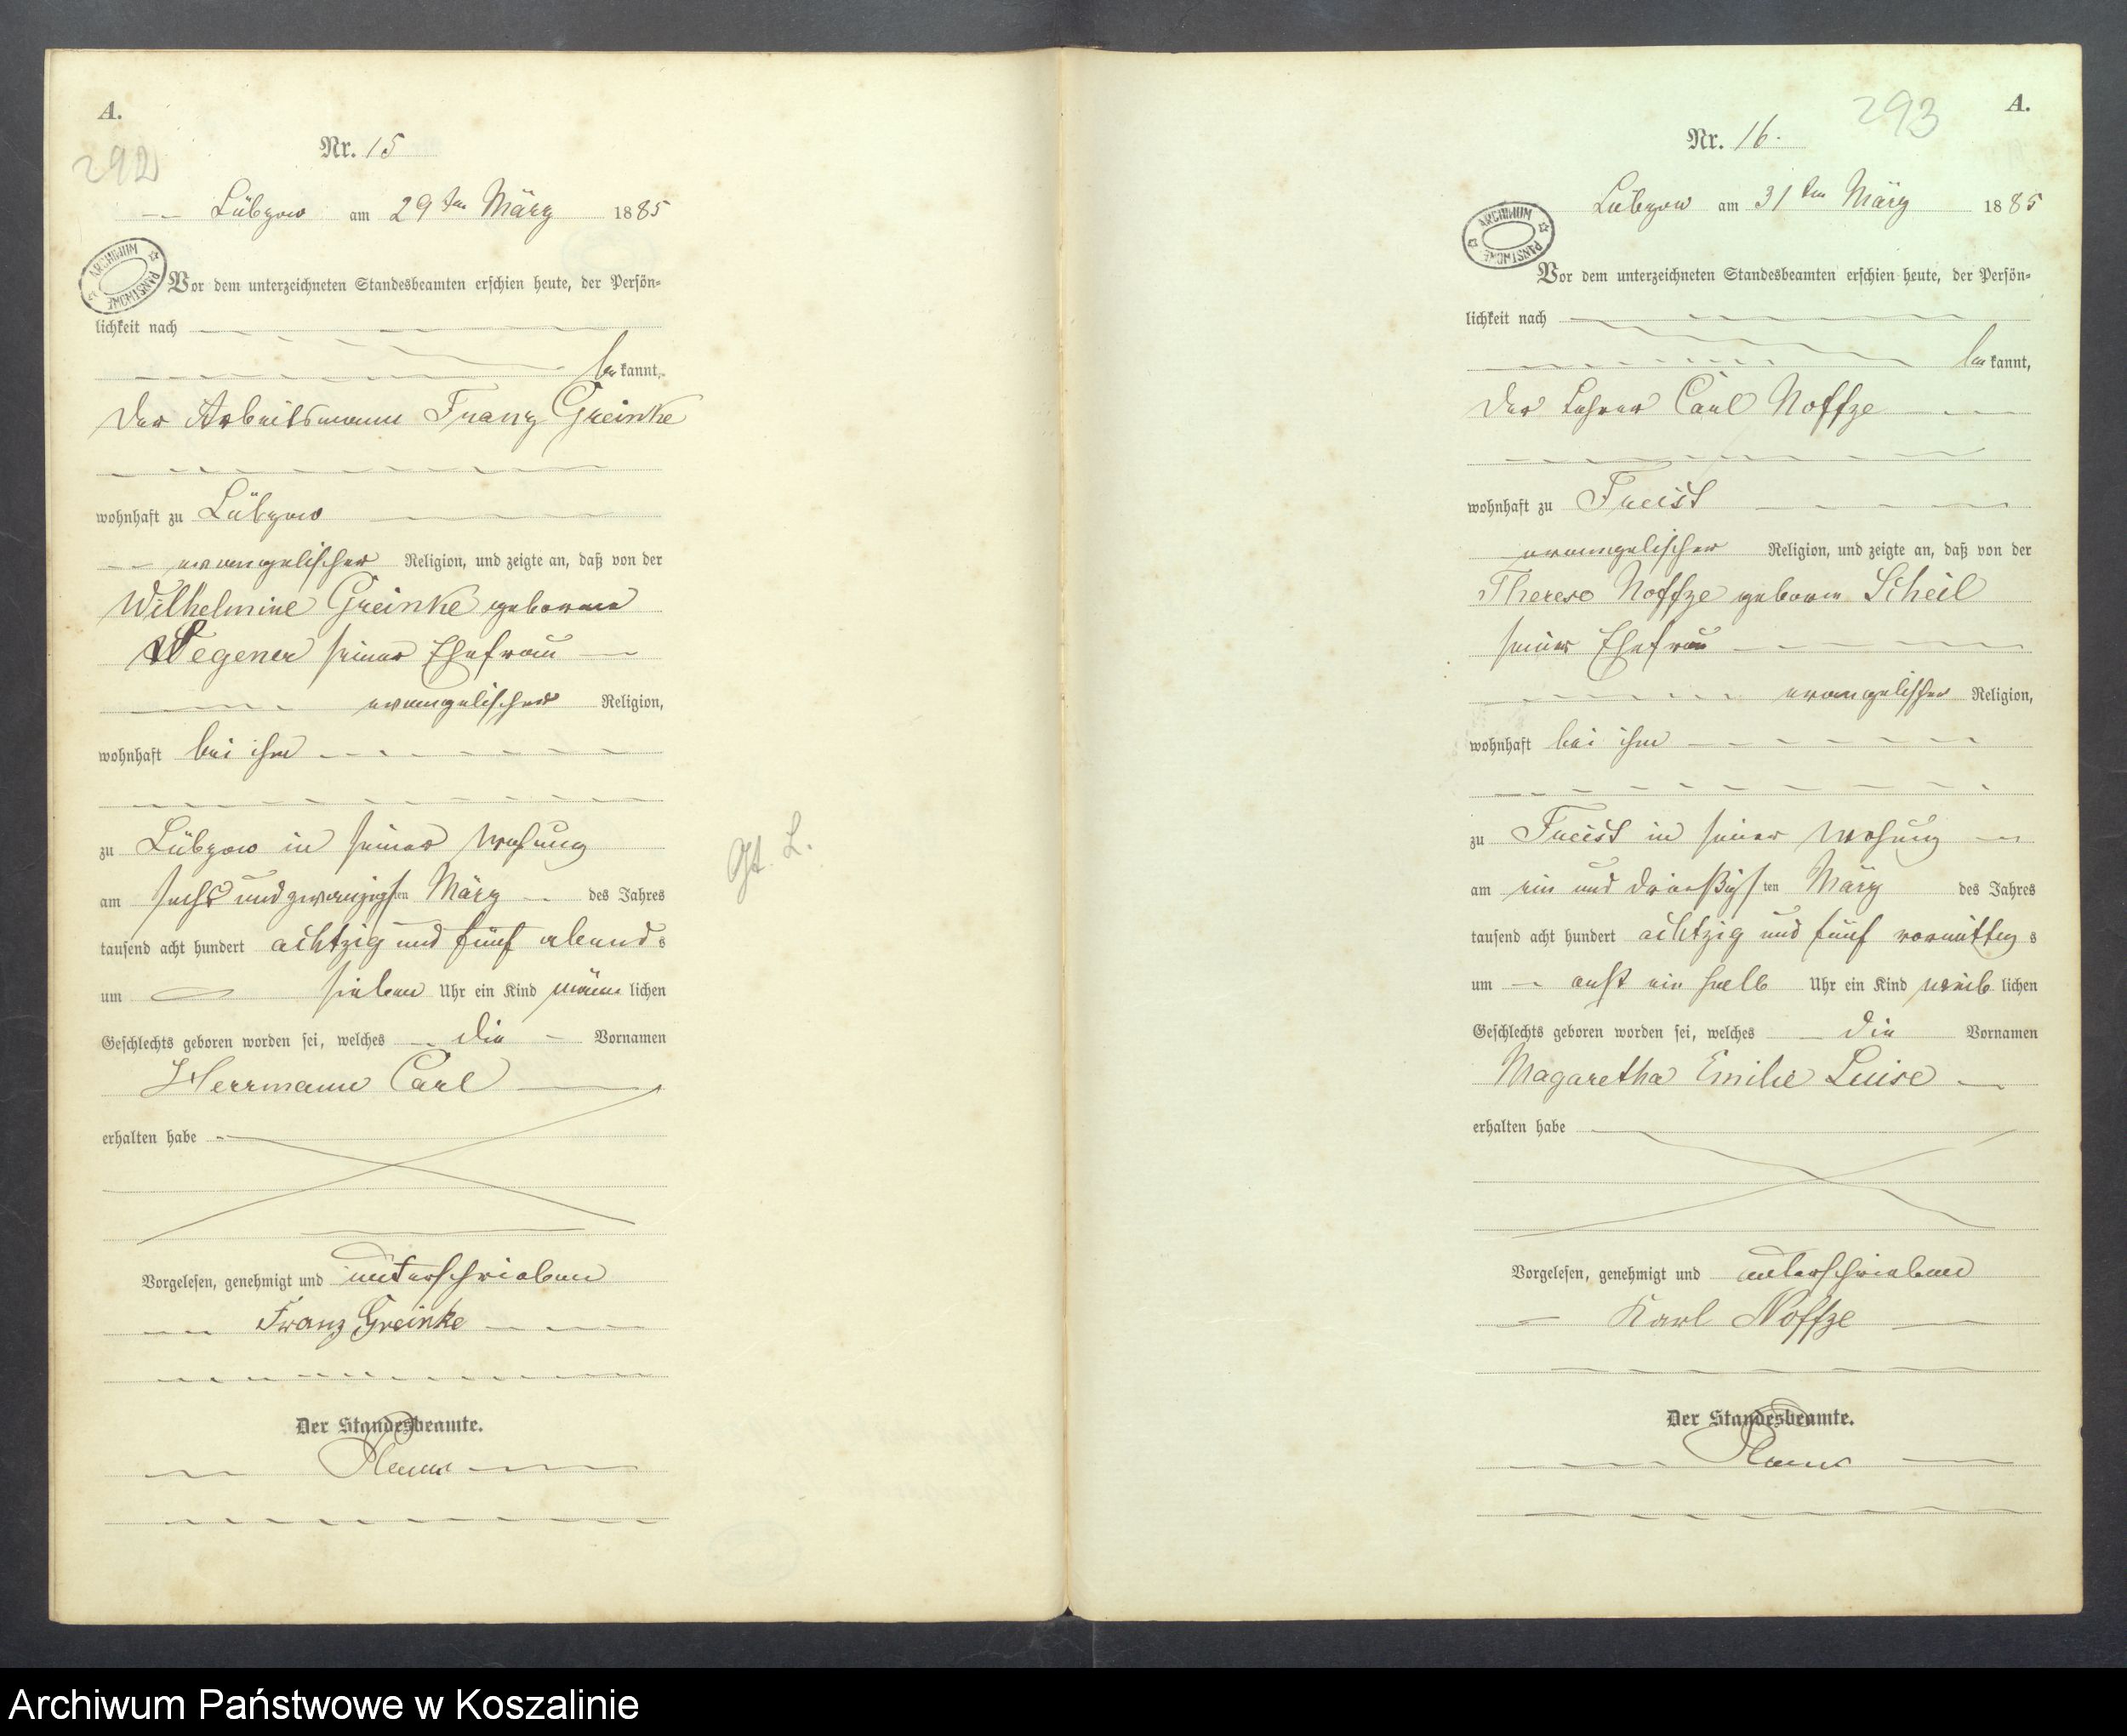 A.
292
Nr. 15
Lübzow am 29ten März 1885
ARCHIWUM PAŃSTWOWE
Vor dem unterzeichneten Standesbeamten erschien heute, der Persön-
lichkeit nach
bekannt,
der Arbeitsmann Franz Greinke
wohnhaft zu Lübzow
evangelischer Religion, und zeigte an, daß von der
Wilhelmine Greinke geborene
Wegener seiner Ehefrau
evangelischer Religion,
wohnhaft bei ihm
zu Lübzow in seiner Wohung
am sechs und zwanzigsten März des Jahres
tausend acht hundert achtzig und fünf abends
um sieben Uhr ein Kind männlichen
Geschlechts geboren worden sei, welches die Vornamen
Herrmann Carl
erhalten habe
Vorgelesen, genehmigt und unterschrieben
Franz Greinke
Der Standesbeamte.
L.
293
A.
Nr. 16.
Lübzow am 31ten März 1885
ARCHIWUM PAŃSTWOWE
Vor dem unterzeichneten Standesbeamten erschien heute, der Persön-
lichkeit nach
bekannt,
der Lehrer Carl Noffze
wohnhaft zu Freist
evangelischer Religion, und zeigte an, daß von der
Therese Noffze geboren Scheil
seiner Ehefrau
evangelischer Religion,
wohnhaft bei ihm
zu Freist in seiner Wohung
am ein und dreißigsten März des Jahres
tausend acht hundert achtzig und fünf vormittags
um acht ein halb Uhr ein Kind weiblichen
Geschlechts geboren worden sei, welches die Vornamen
Magaretha Emilie Luise
erhalten habe
Vorgelesen, genehmigt und unterschrieben
Karl Noffze
Der Standesbeamte.
Archiwum Państwowe w Koszalinie